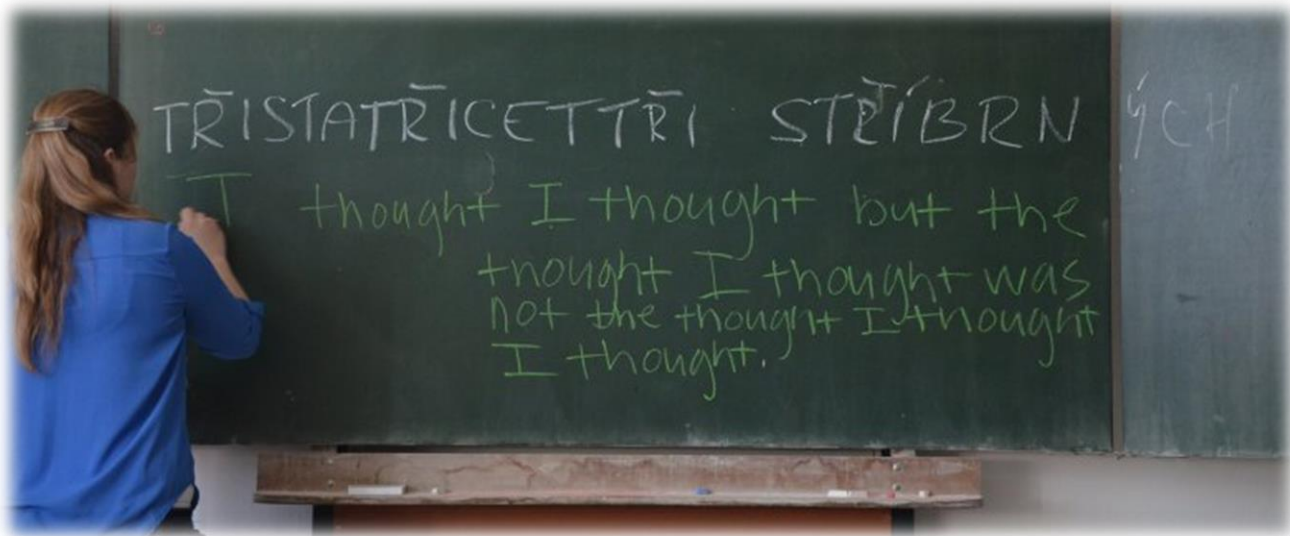 TŘISTATŘICETTŘI STŘÍBRNÝCH
I thought I thought but the
thought I thought was
not the thought I thought
I thought.